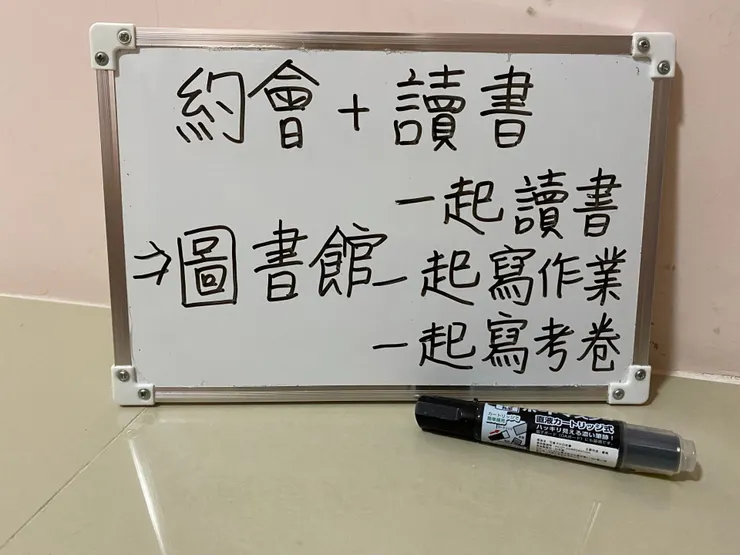 約會+讀書
一起讀書
⇒圖書館一起寫作業
一起寫考卷
直液カートリッジ式
ハッキリ見える濃い筆跡!